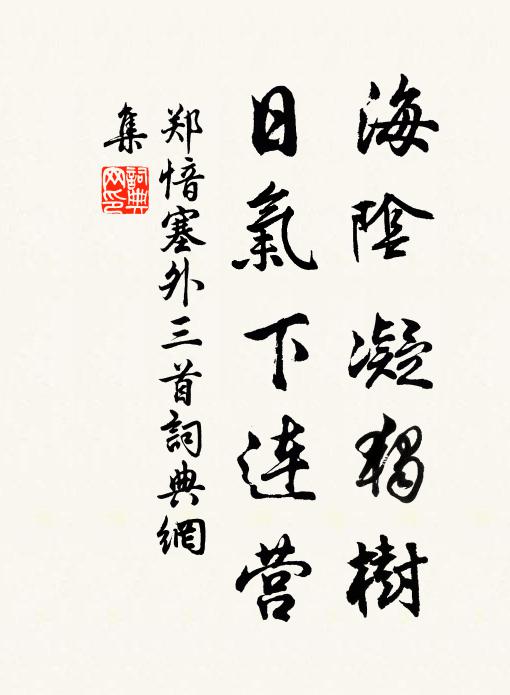 海陰凝獨樹
日氣下连营
郑愔塞外三首詞典網
集
詞典
网印